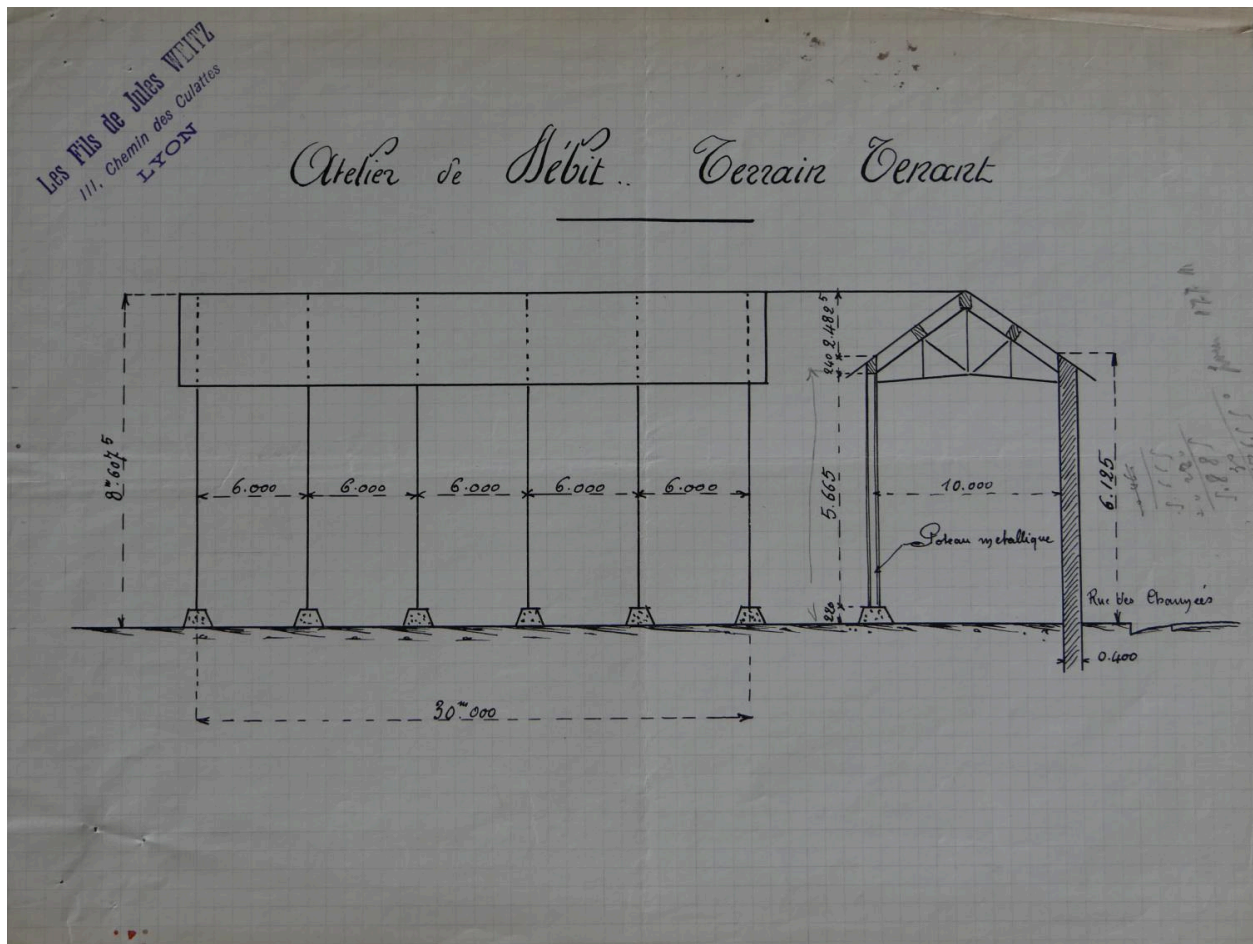 Les Fils de Jules WEITZ
111, Chemin des Culattes
LYON
Atelier de Débit.. Terrain Tenant
8.ᵐ607⁵
6.000 6.000 6.000 6.000 6.000
30ᵐ000
2.482⁵
240
5.665
220
10.000
Poteau metallique
6.125
Rue des
0.400